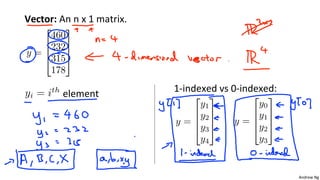 Vector: An n x 1 matrix.
n=4
y = [460 232 315 178]
← 4-dimensional vector.
ℝ³ˣ²
ℝ⁴
yᵢ = iᵗʰ element
y₁ = 460
y₂ = 232
y₃ = 315
A, B, C, X
a, b, x, y
1-indexed vs 0-indexed:
y[1]
y = [y₁ y₂ y₃ y₄]
1-indexed
y[0]
y = [y₀ y₁ y₂ y₃]
0-indexed
Andrew Ng